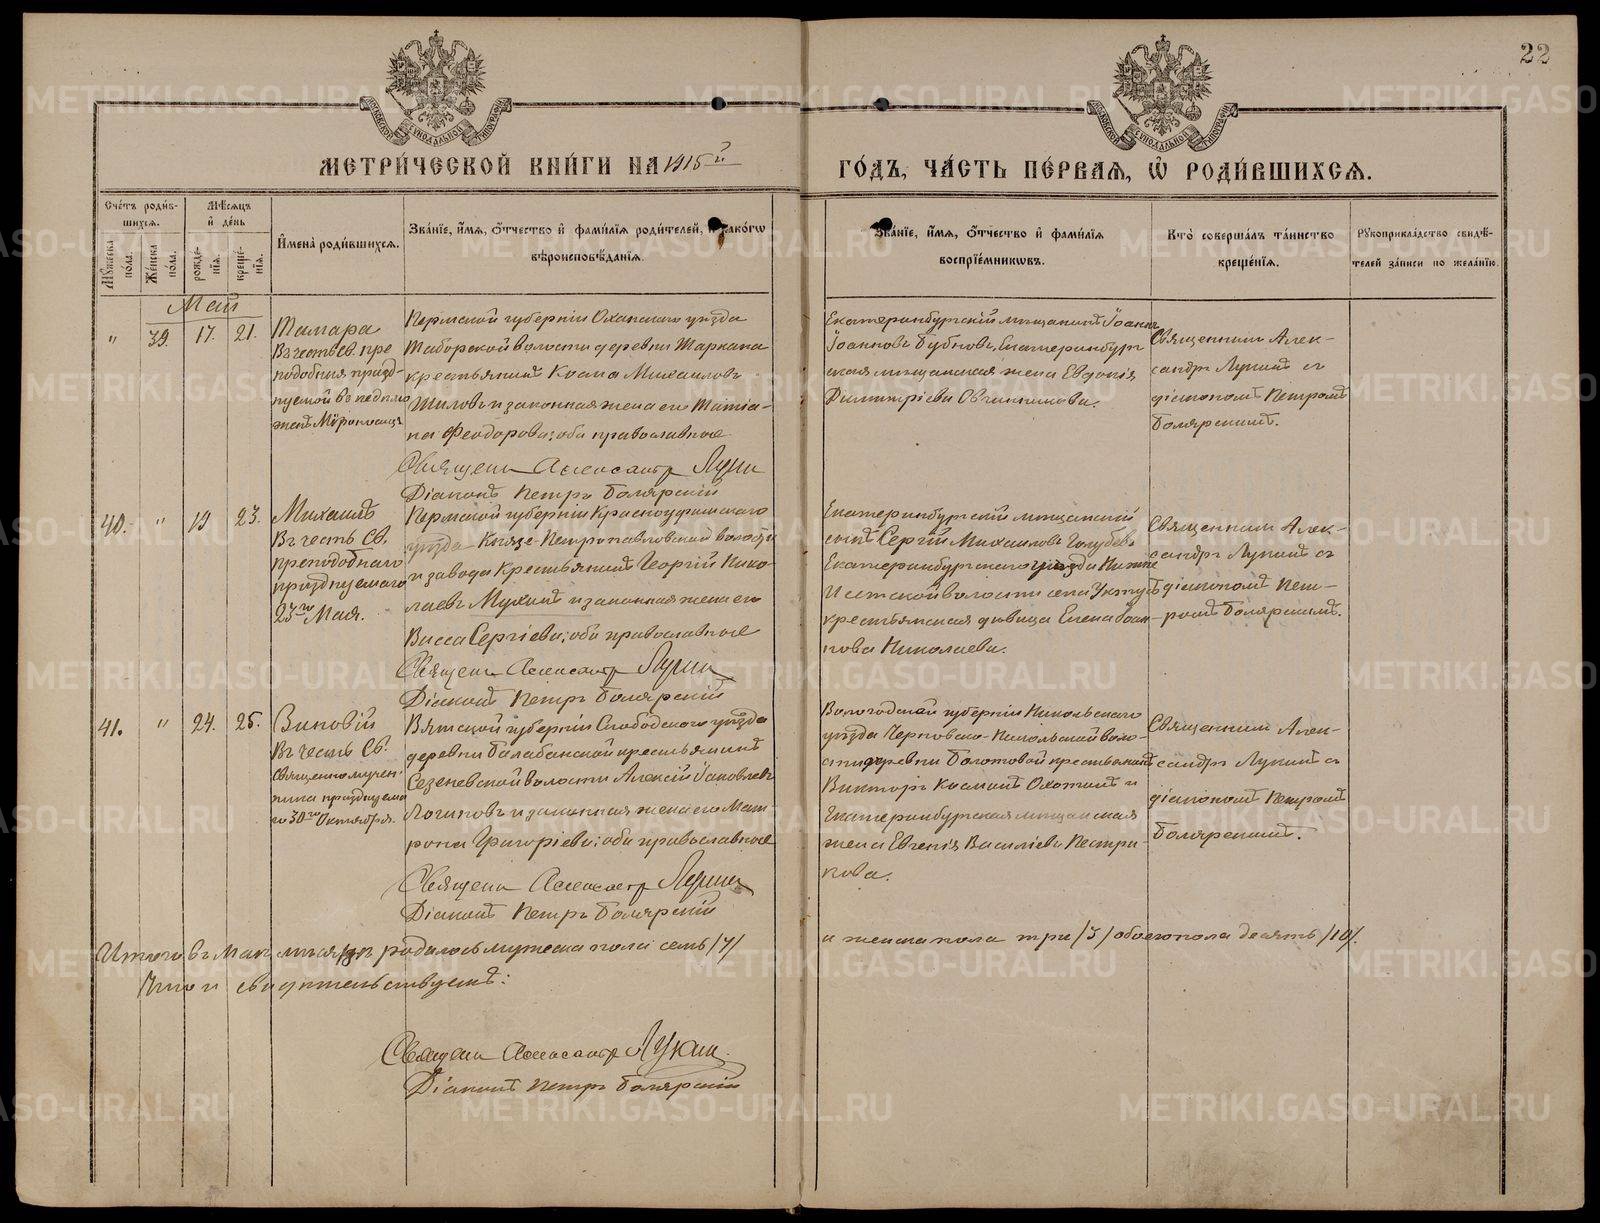 22
МЕТРИ́ЧЕСКОЙ КНИ́ГИ НА 1915й
ГО́ДЪ, ЧА́СТЬ ПЕ́РВАѦ, Ѡ҆ РОДИ́ВШИХСѦ.
Сче́тъ роди́в-
шихсѧ.
Мꙋ́жеска по́ла.
Же́нска по́ла.
Мѣ́сѧцъ
и҆ де́нь
рожде́-
нїѧ.
креще́-
нїѧ.
И҆мена̀ роди́вшихсѧ.
Зва́нїе, и҆́мѧ, ѻ҆́тчество и҆ фами́лїѧ роди́телей, и҆ како́гѡ
вѣроисповѣ́данїѧ.
Зва́нїе, и҆́мѧ, ѻ҆́тчество и҆ фами́лїѧ
воспрїе́мникѡвъ.
Кто̀ соверша́лъ та́инство
креще́нїѧ.
Рꙋкоприкла́дство свидѣ́-
телей за́писи по жела́нїю.
Май
" 39. 17. 21.
Тамара
Въ честь св. пре
подобныя празд-
нуемой въ недѣлю
женъ Мѵроносицъ
Пермской губерніи Оханскаго уѣзда
Таборской волости деревни Шаркана
крестьянинъ Косма Михаиловъ
Шиловъ и законная жена его Татіа-
на Феодорова; оба православные
Священн Александр Лукин
Діаконъ Петръ Боляρскій
Екатеринбургскій мѣщанинъ Іоаннъ
Іоанновъ Бубновъ, Екатеринбург
ская мѣщанская жена Евдокія
Димитріева Овчинникова.
Священникъ Алек-
сандръ Лукинъ съ
діакономъ Петромъ
Болярскимъ.
40. " 19 23.
Михаилъ
Въ честь Св.
преподобнаго
празднуемаго
23го Мая.
Пермской губерніи Красноуфимскаго
уѣзда Князе-Петропавловской волости
и завода крестьянинъ Георгій Нико-
лаевъ Мухинъ и законная жена его
Васса Сергіева; оба православные
Священн Александр Лукин
Діаконъ Петръ Болярскій
Екатеринбургскій мѣщанскій
сынъ Сергій Михаиловъ Голубевъ
Екатеринбургскаго уѣзда Нижне
Исетской волости села Уктусъ
крестьянская дѣвица Елена Іоан
нова Николаева.
Священникъ Алек-
сандръ Лукинъ съ
діакономъ Пет-
ромъ Болярскимъ.
41. " 24. 25.
Зиновій
Въ честь Св.
Священномучен-
ника празднуема
го 30го Октября.
Вятской губерніи Слободского уѣзда
деревни Балабанской крестьянинъ
Сезеневской волости Алексій Іаковлевъ
Логиновъ и законная жена его Мат
рона Григоріева; оба православные
Священн Александр Лукин
Діаконъ Петръ Болярскій
Вологодской губерніи Никольскаго
уѣзда Черновско-Никольской воло-
сти деревни Болотовой крестьянинъ
Викторъ Косминъ Охотинъ и
Екатеринбургская мѣщанская
жена Евгенія Василіева Пестри
кова.
Священникъ Алек-
сандръ Лукинъ съ
діакономъ Петромъ
Болярскимъ.
Итого въ Маѣ мѣсяцѣ родилось мужеска пола семь /7/
и женска пола три /3/ обоего пола десять /10/.
Что и свидѣтельствуемъ:
Священн Александр Лукин.
Діаконъ Петръ Болярскій